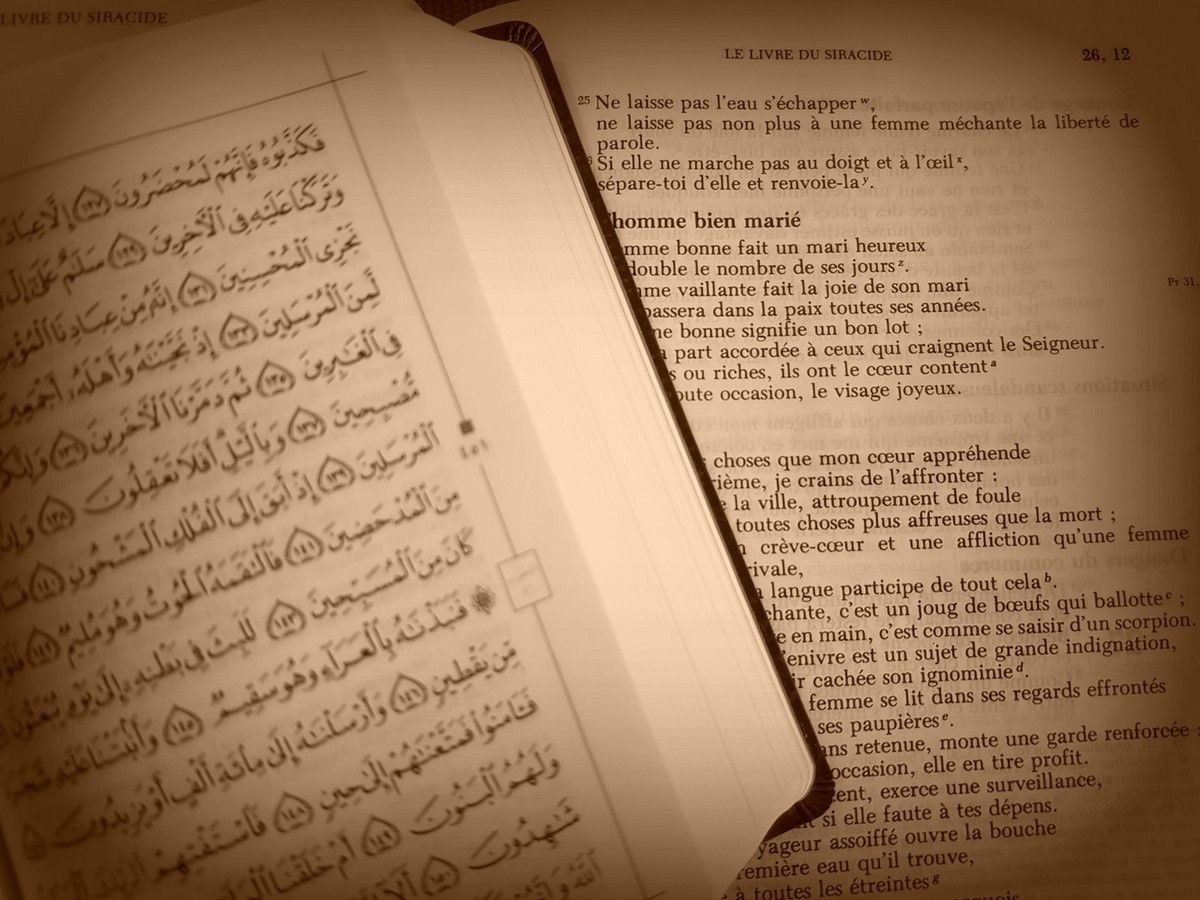 LIVRE DU SIRACIDE
فَكَذَّبُوهُ فَإِنَّهُمْ لَمُحْضَرُونَ ١٢٧ إِلَّا عِبَادَ
وَتَرَكْنَا عَلَيْهِ فِي ٱلْآخِرِينَ ١٢٩ سَلَٰمٌ عَلَىٰٓ إِلْ
نَجْزِي ٱلْمُحْسِنِينَ ١٣١ إِنَّهُۥ مِنْ عِبَادِنَا ٱلْمُؤْمِنِ
لَّمِنَ ٱلْمُرْسَلِينَ ١٣٣ إِذْ نَجَّيْنَٰهُ وَأَهْلَهُۥٓ أَجْمَعِينَ
فِي ٱلْغَٰبِرِينَ ١٣٥ ثُمَّ دَمَّرْنَا ٱلْآخَرِينَ ١٣٦ وَإِنَّكُمْ
مُّصْبِحِينَ ١٣٧ وَبِٱلَّيْلِ أَفَلَا تَعْقِلُونَ ١٣٨ وَإِنَّ
ٱلْمُرْسَلِينَ ١٣٩ إِذْ أَبَقَ إِلَى ٱلْفُلْكِ ٱلْمَشْحُونِ ١٤٠
مِنَ ٱلْمُدْحَضِينَ ١٤١ فَٱلْتَقَمَهُ ٱلْحُوتُ وَهُوَ مُلِيمٌ ١٤٢
كَانَ مِنَ ٱلْمُسَبِّحِينَ ١٤٣ لَلَبِثَ فِي بَطْنِهِۦٓ إِلَىٰ يَوْمِ يُبْعَثُونَ
فَنَبَذْنَٰهُ بِٱلْعَرَآءِ وَهُوَ سَقِيمٌ ١٤٥ وَأَنۢبَتْنَا عَلَيْهِ شَجَرَ
مِّن يَقْطِينٍ ١٤٦ وَأَرْسَلْنَٰهُ إِلَىٰ مِا۟ئَةِ أَلْفٍ أَوْ يَزِيدُونَ
فَـَٔامَنُوا۟ فَمَتَّعْنَٰهُمْ إِلَىٰ حِينٍ ١٤٨ فَٱسْتَفْتِهِمْ
وَلَهُمُ ٱلْبَنُونَ ١٤٩ أَمْ خَلَقْنَا
شَٰهِدُونَ ١٥٠
٤٥١
LE LIVRE DU SIRACIDE 26, 12
25 Ne laisse pas l'eau s'échapper w,
ne laisse pas non plus à une femme méchante la liberté de
parole.
Si elle ne marche pas au doigt et à l'œil x,
sépare-toi d'elle et renvoie-la y.
homme bien marié
mme bonne fait un mari heureux
double le nombre de ses jours z.
me vaillante fait la joie de son mari
passera dans la paix toutes ses années.
ne bonne signifie un bon lot ;
part accordée à ceux qui craignent le Seigneur.
s ou riches, ils ont le cœur content a
oute occasion, le visage joyeux.
Pr 31,
choses que mon cœur appréhende
ième, je crains de l'affronter :
la ville, attroupement de foule
toutes choses plus affreuses que la mort ;
crève-cœur et une affliction qu'une femme
rivale,
langue participe de tout cela b.
chante, c'est un joug de bœufs qui ballotte c ;
e en main, c'est comme se saisir d'un scorpion.
'enivre est un sujet de grande indignation,
ir cachée son ignominie d.
femme se lit dans ses regards effrontés
ses paupières e.
ans retenue, monte une garde renforcée ;
occasion, elle en tire profit.
ent, exerce une surveillance,
si elle faute à tes dépens.
yageur assoiffé ouvre la bouche
remière eau qu'il trouve,
à toutes les étreintes g